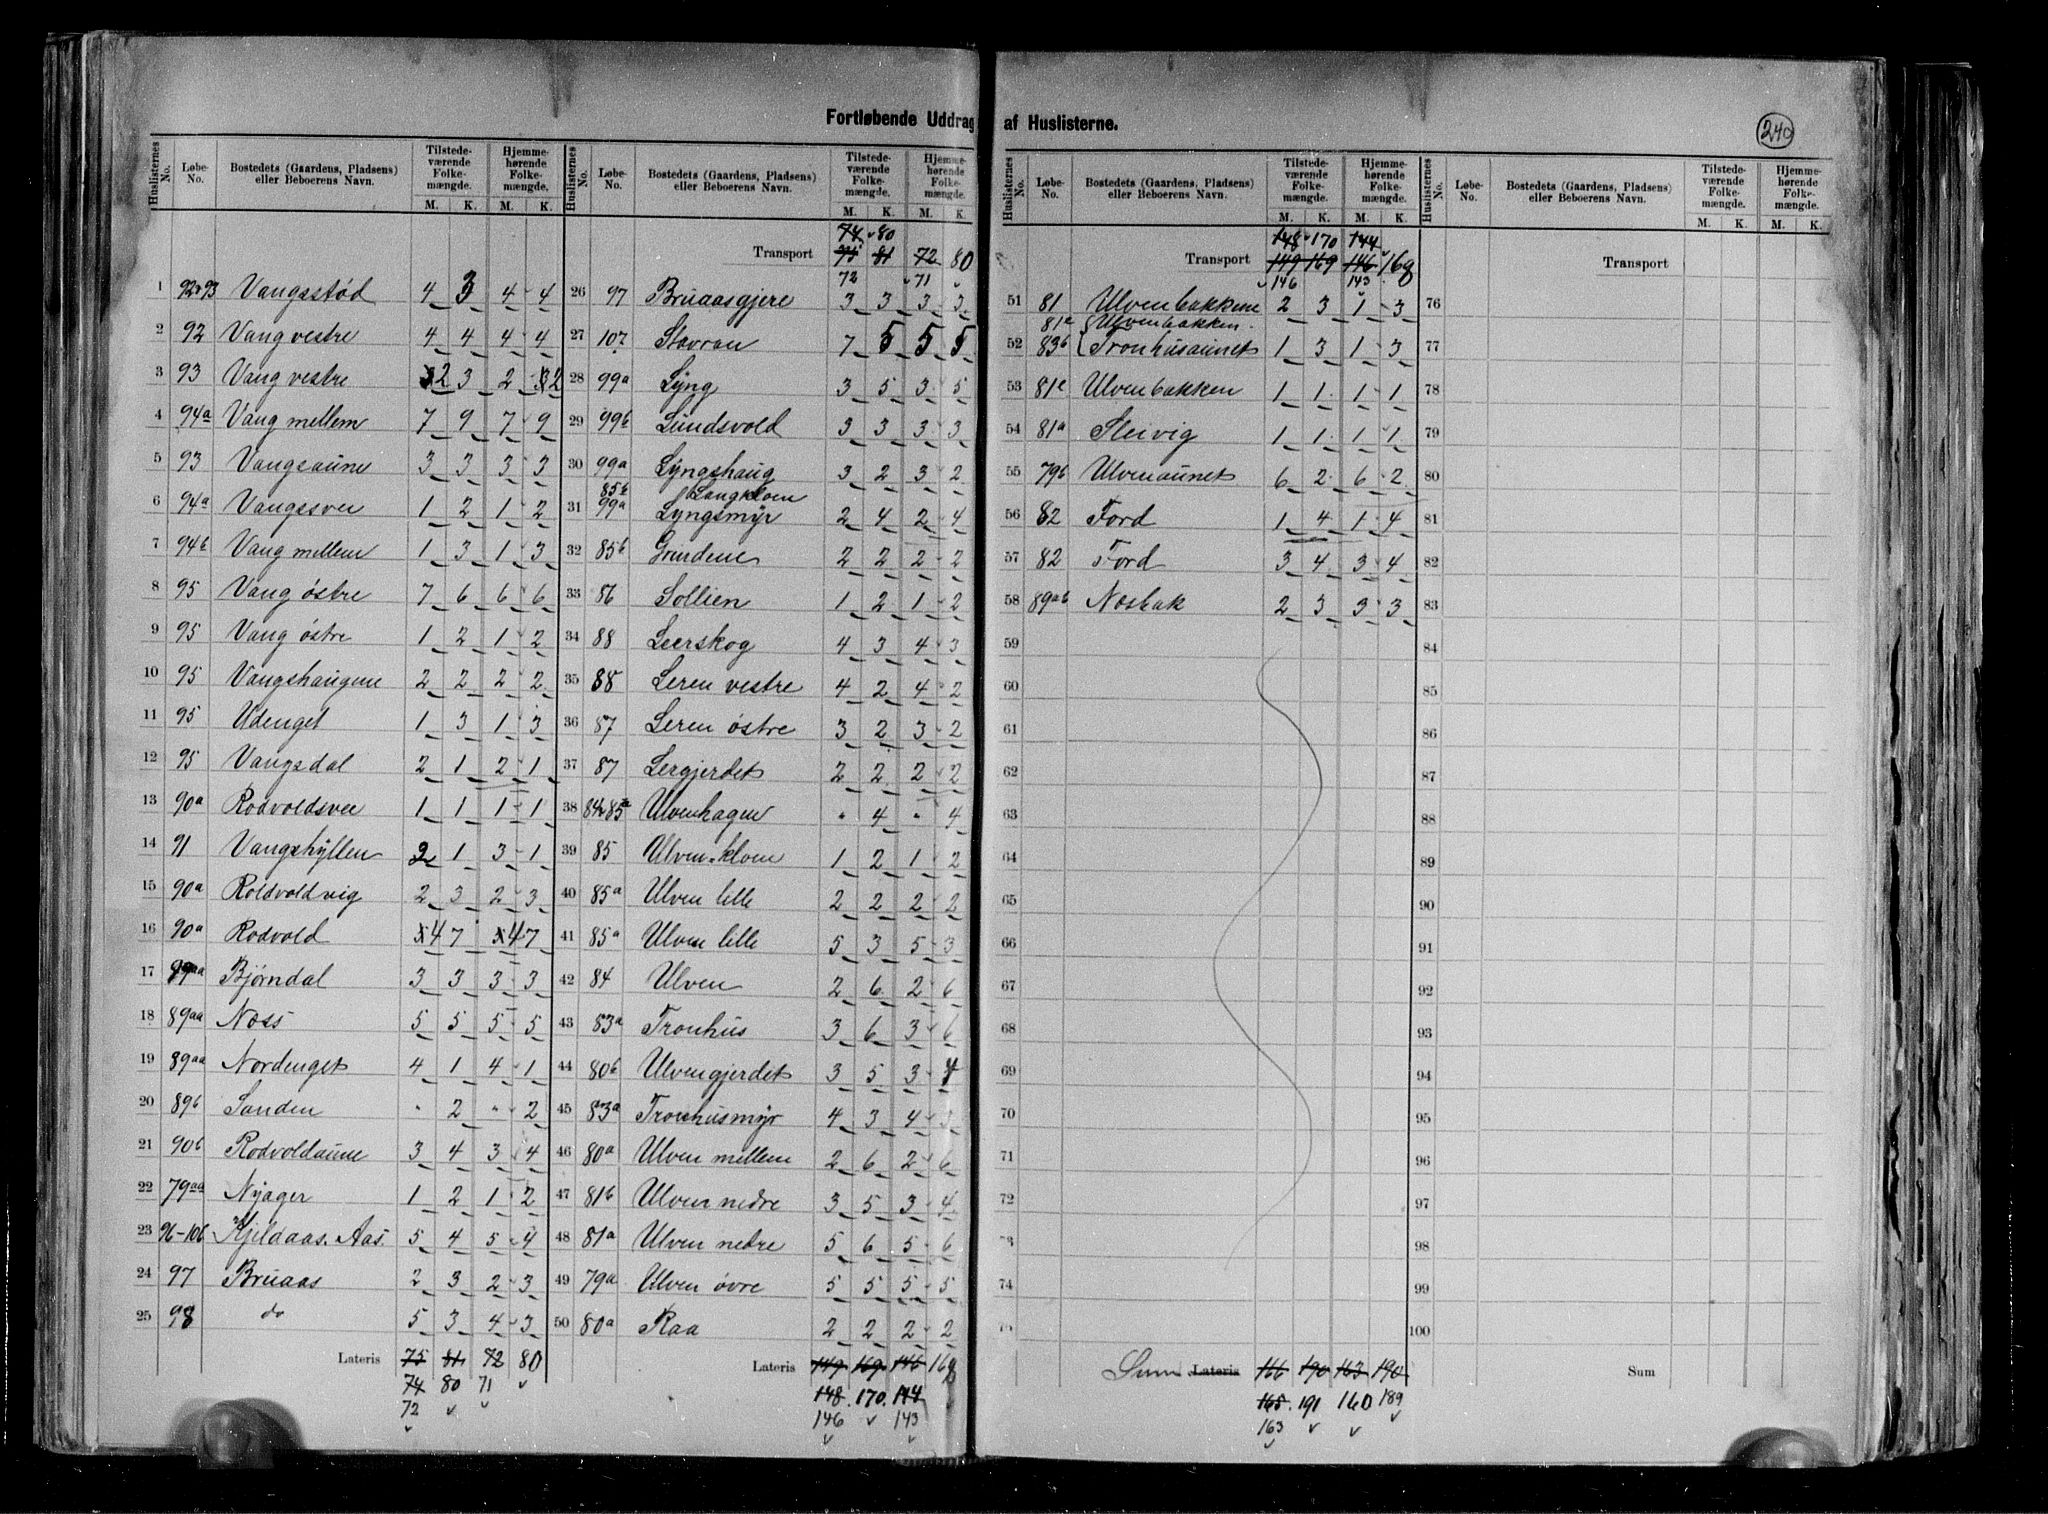 Fortløbende Uddrag af Huslisterne.
240
Huslisternes No. Løbe-No. Bostedets (Gaardens, Pladsens) eller Beboerens Navn. Tilstedeværende Folkemængde. M. K. Hjemmehørende Folkemængde. M. K.
1 92+93 Vangsstød 4 3 4 4
2 92 Vang vestre 4 4 4 4
3 93 Vang vestre 2 3 2 2
4 94a Vang mellem 7 9 7 9
5 93 Vangsaune 3 3 3 3
6 94a Vangsvei 1 2 1 2
7 94b Vang mellem 1 3 1 3
8 95 Vang østre 7 6 6 6
9 95 Vang østre 1 2 1 2
10 95 Vangshaugene 2 2 2 2
11 95 Udenget 1 3 1 3
12 95 Vangsdal 2 1 2 1
13 90a Rodvoldsvee 1 1 1 1
14 91 Vangshyllen 2 1 3 1
15 90a Roldvoldvig 2 3 2 3
16 90a Rodvold 4 7 4 7
17 89aa Bjørndal 3 3 3 3
18 89aa Noss 5 5 5 5
19 89aa Nordenget 4 1 4 1
20 89b Sanden " 2 " 2
21 90b Rodvoldaune 3 4 3 4
22 79aa Nyager 1 2 1 2
23 96-106 Kjeldaas. Aas. 5 4 5 4
24 97 Bruaas 2 3 2 3
25 98 do 5 3 4 3
Lateris 75 81 72 80
74 80 71
72
Huslisternes No. Løbe-No. Bostedets (Gaardens, Pladsens) eller Beboerens Navn. Tilstedeværende Folkemængde. M. K. Hjemmehørende Folkemængde. M. K.
74 80
Transport 75 81 72 80
72 71
26 97 Bruaasgjere 3 3 3 3
27 107 Stavran 7 5 5 5
28 99a Lyng 3 5 3 5
29 99b Lundsvold 3 3 3 3
30 99a Lyngshaug 3 2 3 2
85b Langkloen
31 99a Lyngsmyr 2 4 2 4
32 85b Grindene 2 2 2 2
33 86 Sollien 1 2 1 2
34 88 Leerskog 4 3 4 3
35 88 Leren vestre 4 2 4 2
36 87 Leren østre 3 2 3 2
37 87 Lergjerdet 2 2 2 2
38 84+85a Ulvenhagen " 4 " 4
39 85 Ulven-kloen 1 2 1 2
40 85a Ulven lille 2 2 2 2
41 85a Ulven lille 5 3 5 3
42 84 Ulven 2 6 2 6
43 83a Tronhus 3 6 3 6
44 80b Ulvengjerdet 3 5 3
45 83a Tronhusmyr 4 3 4 3
46 80a Ulven mellem 2 6 2 6
47 81b Ulven nedre 3 5 3 4
48 81a Ulven nedre 5 6 5 6
49 79a Ulven øvre 5 5 5 5
50 80a Raa 2 2 2 2
Lateris 149 169 146 168
148 170 144
146 143
Huslisternes No. Løbe-No. Bostedets (Gaardens, Pladsens) eller Beboerens Navn. Tilstedeværende Folkemængde. M. K. Hjemmehørende Folkemængde. M. K.
148 170 144
Transport 149 169 146 168
146 143
51 81 Ulvenbakkene 2 3 1 3
81c Ulvenbakken.
52 83b Tronhusaunet 1 3 1 3
53 81c Ulvenbakken 1 1 1 1
54 81a Sleivig 1 1 1 1
55 79b Ulvenaunet 6 2 6 2
56 82 Ford 1 4 1 4
57 82 Ford 3 4 3 4
58 89ab Nosbak 2 3 3 3
59
60
61
62
63
64
65
66
67
68
69
70
71
72
74
Sum Lateris 166 190 163 190
165 191 160 189
163
Huslisternes No. Løbe-No. Bostedets (Gaardens, Pladsens) eller Beboerens Navn. Tilstedeværende Folkemængde. M. K. Hjemmehørende Folkemængde. M. K.
Transport
76
77
78
79
80
81
82
83
84
85
86
87
88
89
90
91
92
93
94
95
96
97
98
99
100
Sum